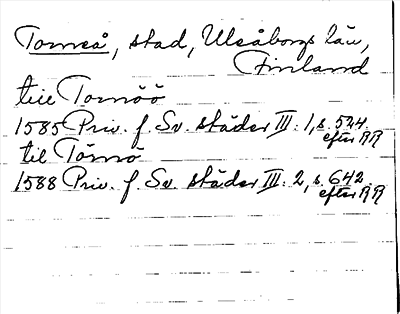 Torneå, stad, Uleåborgs län,
Finland
till Tornöö
1585 Priv. f. Sv. städer III: 1, s. 524.
efter RR
til Törnö
1588 Priv. f. Sv. städer III: 2, s. 642.
efter RR